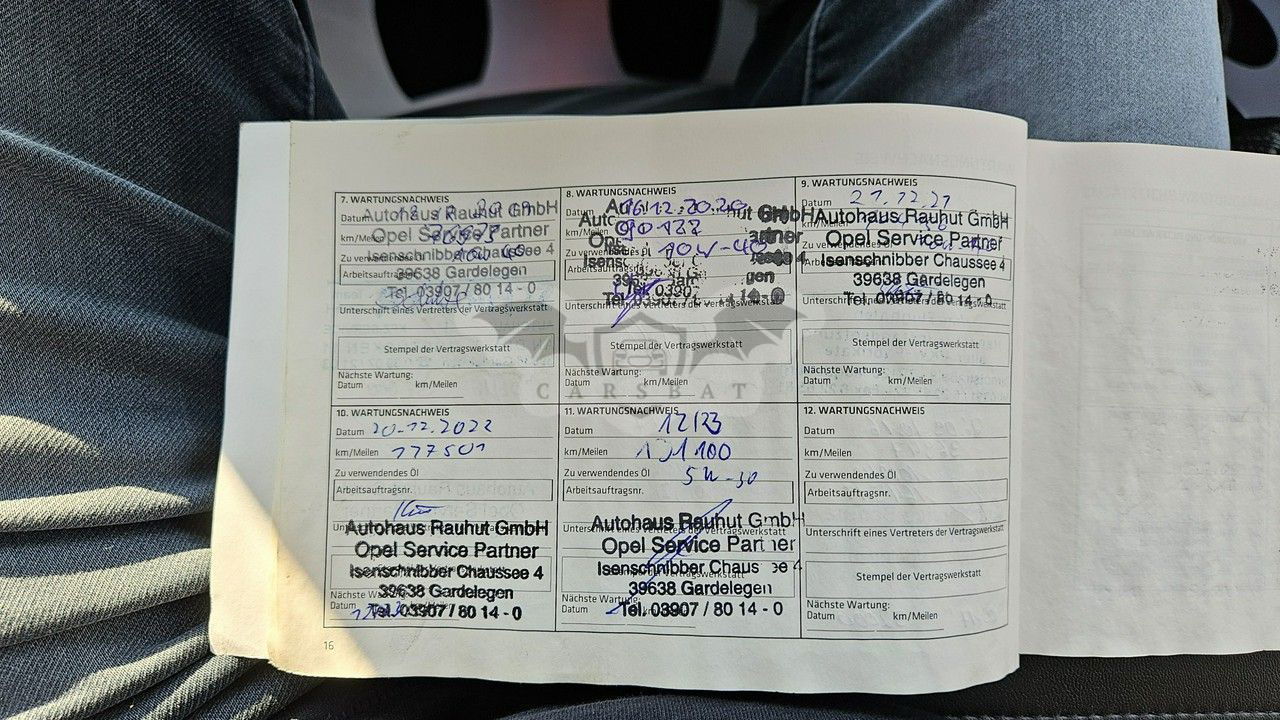 7. WARTUNGSNACHWEIS
Datum
Autohaus Rauhut GmbH
km/Meilen
Opel Service Partner
Zu verwendendes Öl
Isenschnibber Chaussee 4
Arbeitsauftragsnr.
39638 Gardelegen
Tel. 03907 / 80 14 - 0
Unterschrift eines Vertreters der Vertragswerkstatt
Stempel der Vertragswerkstatt
Nächste Wartung:
Datum km/Meilen
8. WARTUNGSNACHWEIS
Datum 16.12.2020
km/Meilen 90122
10W-40
Unterschrift eines Vertreters der Vertragswerkstatt
Stempel der Vertragswerkstatt
Nächste Wartung:
Datum km/Meilen
9. WARTUNGSNACHWEIS
Datum 21.12.21
Autohaus Rauhut GmbH
Opel Service Partner
Isenschnibber Chaussee 4
39638 Gardelegen
Tel. 03907 / 80 14 - 0
Stempel der Vertragswerkstatt
Nächste Wartung:
Datum km/Meilen
CARSBAT
10. WARTUNGSNACHWEIS
Datum 20.12.2022
km/Meilen 117501
Zu verwendendes Öl
Arbeitsauftragsnr.
Autohaus Rauhut GmbH
Opel Service Partner
Isenschnibber Chaussee 4
39638 Gardelegen
Datum
Tel. 03907 / 80 14 - 0
11. WARTUNGSNACHWEIS
Datum 12/23
km/Meilen 131100
Zu verwendendes Öl 5W-30
Arbeitsauftragsnr.
Autohaus Rauhut GmbH
Opel Service Partner
Isenschnibber Chaussee 4
39638 Gardelegen
Nächste Wartung:
Datum
Tel. 03907 / 80 14 - 0
12. WARTUNGSNACHWEIS
Datum
km/Meilen
Zu verwendendes Öl
Arbeitsauftragsnr.
Unterschrift eines Vertreters der Vertragswerkstatt
Stempel der Vertragswerkstatt
Nächste Wartung:
Datum km/Meilen
16